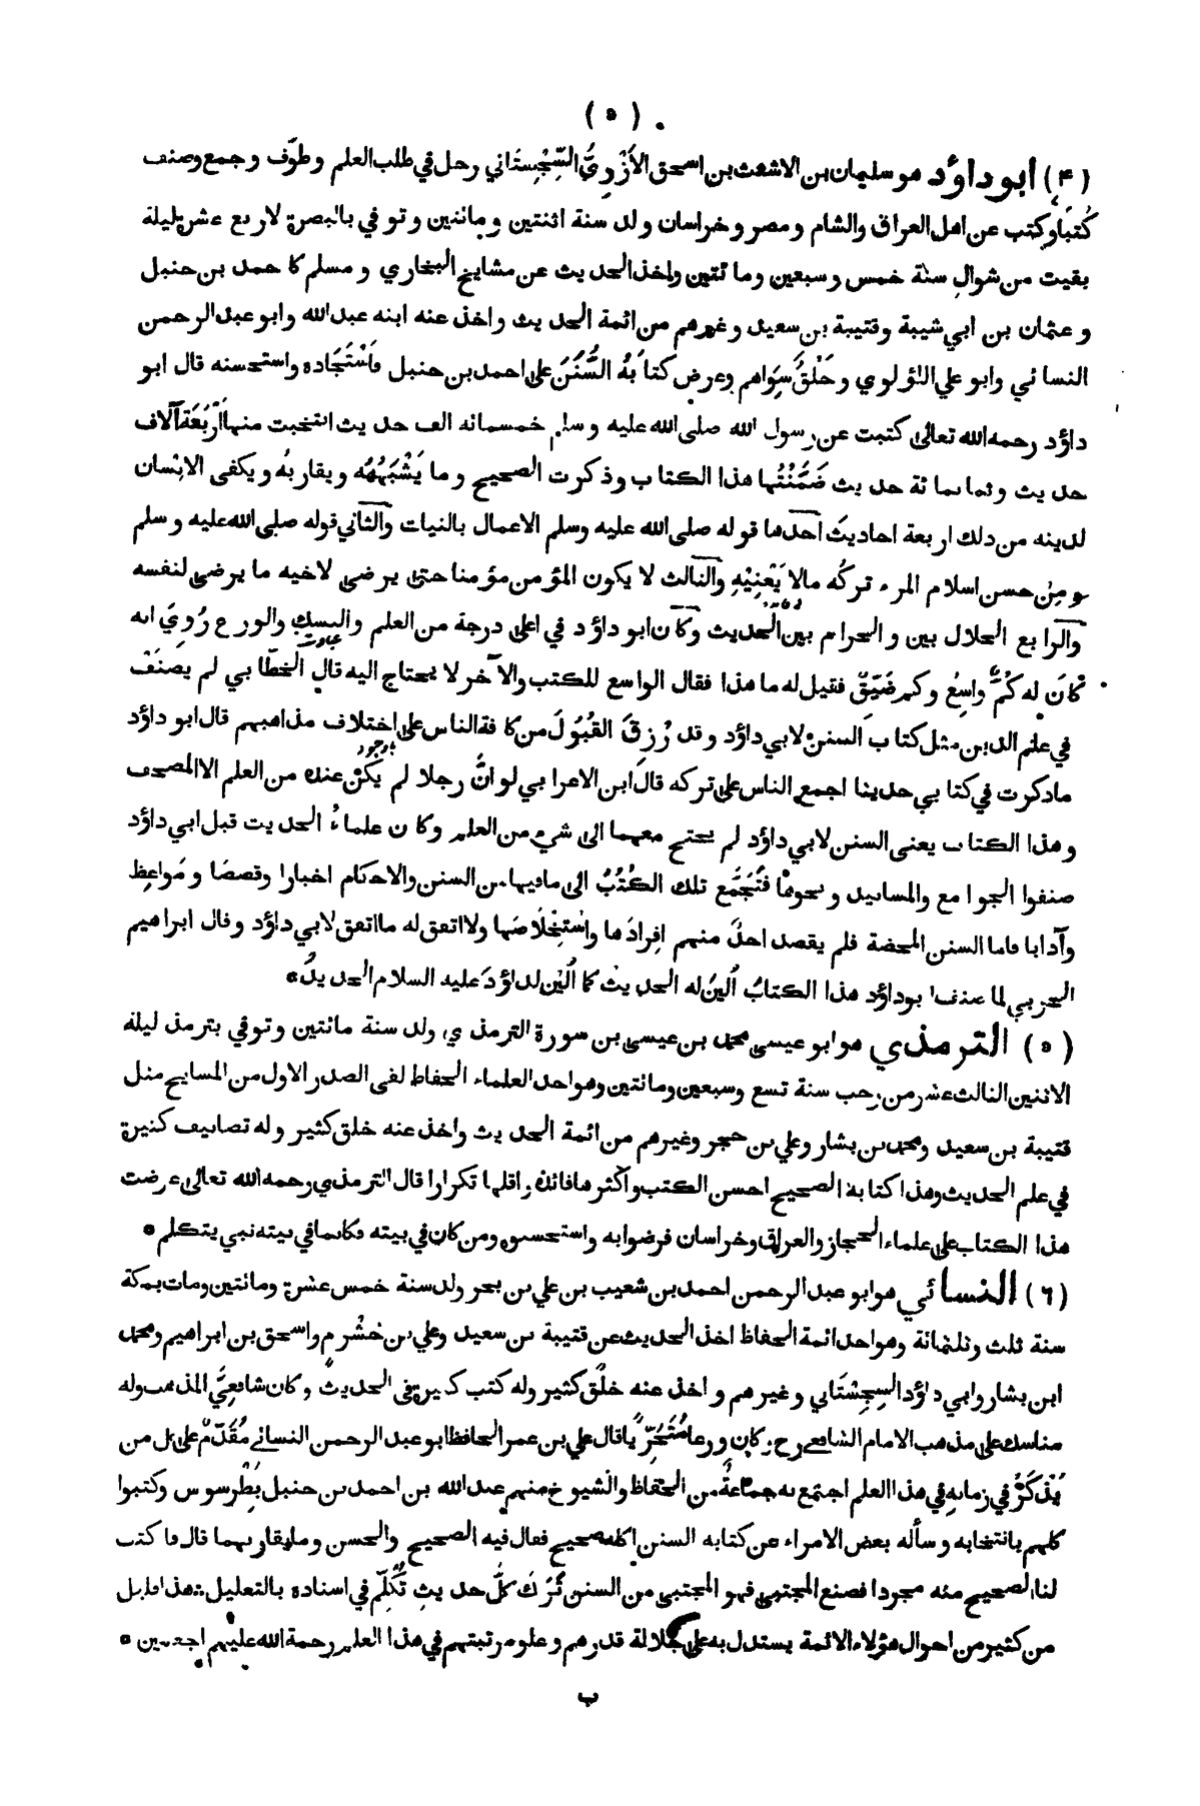 ( ٥ )
(۴) أبو داؤد هو سليمان بن الاشعث بن اسحق الأَزْدِيُّ السِّجِسْتَاني رحل في طلب العلم وطوَّف وجمع وصنف
كُتبًا وكتب عن اهل العراق والشام ومصر وخراسان ولد سنة اثنتين ومائتين وتوفي بالبصرة لاربع عشرة ليلة
بقيت من شوال سنة خمس وسبعين ومائتين واخذ الحديث عن مشايخ البخاري ومسلم كاحمد بن حنبل
وعثمان بن ابي شيبة وقتيبة بن سعيد وغيرهم من ائمة الحديث واخذ عنه ابنه عبدالله وابو عبدالرحمن
النسائي وابو علي اللؤلوي وخَلْقٌ سِوَاهم وعرض كتابَهُ السُّنَنَ على احمد بن حنبل فَاسْتَجَاده واستحسنه قال ابو
داؤد رحمه الله تعالى كتبت عن رسول الله صلى الله عليه وسلم خمسمائه الف حديث انتخبت منها أَرْبَعَةَ آلاف
حديث وثمانمائة حديث ضَمَّنْتُها هذا الكتاب وذكرت الصحيح وما يَشْبَهُه ويقاربُه ويكفى الانْسان
لدينه من ذلك اربعة احاديثَ احدها قوله صلى الله عليه وسلم الاعمال بالنيات والثاني قوله صلى الله عليه وسلم
ومِنْ حسن اسلام المرء تركُه مالا يَعْنِيْهِ والثالث لا يكون المؤمن مؤمنا حتى يرضى لاخيه ما يرضى لنفسه
والرابع الحلال بين والحرام بين الحديث وكان ابو داؤد في اعلى درجة من العلم والنسك والورع رُوِيَ انه
كانَ له كُمٌّ واسِعٌ وكم ضَيِّقٌ فقيل له ما هذا فقال الواسع للكتب والآخر لا يحتاج اليه قال الخطّابي لم يُصنَّفْ
في علم الدين مثل كتاب السنن لابي داؤد وقد رُزِقَ القَبُوْلَ من كافة الناس على اختلاف مذاهبهم قال ابو داؤد
ما ذكرت في كتابي حديثا اجمع الناس على تركه قال ابن الاعرابي لو انَّ رجلا لم يَكُنْ عنده من العلم الا المصحف
وهذا الكتاب يعنى السنن لابي داؤد لم يحتج معهما الى شيء من العلم وكان علماءُ الحديث قبل ابي داؤد
صنفوا الجوامع والمسانيد ونحوها فَتَجَمَّع تلك الكُتُبُ الى ما فيها من السنن والاحكام اخبارا وقصصًا ومَواعِظ
وآدابا فاما السنن المحضة فلم يقصد احدٌ منهم افرادَها واسْتِخْلَاصَها ولا اتفق له ما اتفق لابي داؤد وقال ابراهيم
الحربي لما صنف ابو داؤد هذا الكتابُ أُلِينَ له الحديث كما أُلِيْنَ لداؤدَ عليه السلام الحديدُ •
(٥) الترمذي هو ابو عيسى محمد بن عيسى بن سورة الترمذي ولد سنة مائتين وتوفي بترمذ ليلة
الاثنين الثالث عشر من رجب سنة تسع وسبعين ومائتين وهو احد العلماء الحفاظ لقى الصدر الاول من المشايخ مثل
قتيبة بن سعيد ومحمد بن بشار وعلي بن حجر وغيرهم من ائمة الحديث واخذ عنه خلق كثير وله تصانيف كثيرة
في علم الحديث وهذا كتابه الصحيح احسن الكتب واكثرها فائدة واقلها تكرارا قال الترمذي رحمه الله تعالى عرضت
هذا الكتاب على علماء الحجاز والعراق وخراسان فرضوا به واستحسنوه ومن كان في بيته فكانما في بيته نبي يتكلم •
(٦) النسائي هو ابو عبدالرحمن احمد بن شعيب بن علي بن بحر ولد سنة خمس عشرة ومائتين ومات بمكة
سنة ثلث وثلثمائة وهو احد ائمة الحفاظ اخذ الحديث عن قتيبة بن سعيد وعلي بن خشْرم واسحق بن ابراهيم ومحمد
ابن بشار وابي داؤد السِجِسْتَاني وغيرهم واخذ عنه خلْق كثير وله كتب كثيرة في الحديث وكان شافعِيَّ المذهب وله
مناسك على مذهب الامام الشافعي رح وكان ورعا مُتَحَرِّيًا قال علي بن عمر الحافظ ابو عبدالرحمن النسائي مُقَدَّمٌ على كل من
يُذْكَرُ في زمانه في هذا العلم اجتمع به جماعةٌ من الحفاظ والشيوخ منهم عبدالله بن احمد بن حنبل بطَرسوس وكتبوا
كلهم بانتخابه وسأله بعض الامراء عن كتابه السنن اكله صحيح فقال فيه الصحيح والحسن وما يقاربهما قال فاكتب
لنا الصحيح منه مجردا فصنع المجتبى فهو المجتبى من السنن تَرَكَ كلَّ حديثٍ تُكُلِّم في اسناده بالتعليل هذا قليل
من كثير من احوال هؤلاء الائمة يستدل به على جلالة قدرهم وعلو مرتبتهم في هذا العلم رحمة الله عليهم اجمعين •
ب